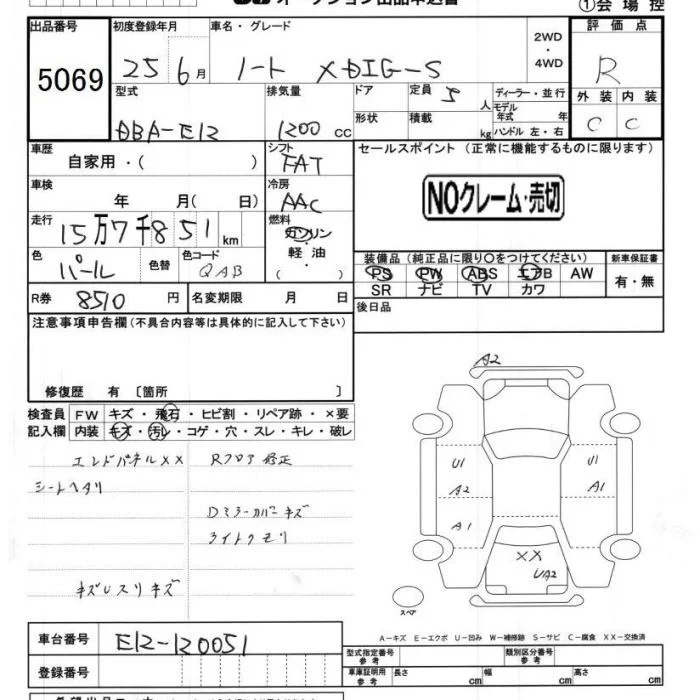 ①会場控
出品番号 初度登録年月 車名・グレード 2WD・4WD 評価点
5069 25 6月 ノート XDIG-S R
型式 排気量 ドア 定員 5人 ディーラー・並行 外装 内装
DBA-E12 1200cc 形状 積載 kg モデル年式 年 ハンドル 左・右 C C
車歴 シフト セールスポイント (正常に機能するものに限ります)
自家用・( ) FAT
車検 冷房 NOクレーム・売切
年 月( 日) AAC
走行 燃料
15万7千851km ガソリン・軽油・( )
色 色替 色コード 装備品 (純正品に限り○をつけてください) 新車保証書
パール QAB PS PW ABS エアB AW 有・無
SR ナビ TV カワ
R券 8510円 名変期限 月 日 後日品
注意事項申告欄(不具合内容等は具体的に記入して下さい)
修復歴 有 〔箇所 〕
A2
検査員 FW キズ・飛石・ヒビ割・リペア跡・×要
記入欄 内装 キズ・汚レ・コゲ・穴・スレ・キレ・破レ
エンドパネルXX Rフロア修正
シートヘタリ
U1 U1
A2 A1
Dミラーカバーキズ
A1
ライトクモリ
XX
UA2
キズUスリキズ
スペア
A-キズ E-エクボ U-凹み W-補修跡 S-サビ C-腐食 XX-交換済
車台番号 E12-120051
型式指定番号 参考 類別区分番号 参考
登録番号 車庫証明用 参考 長さ cm 幅 cm 高さ cm